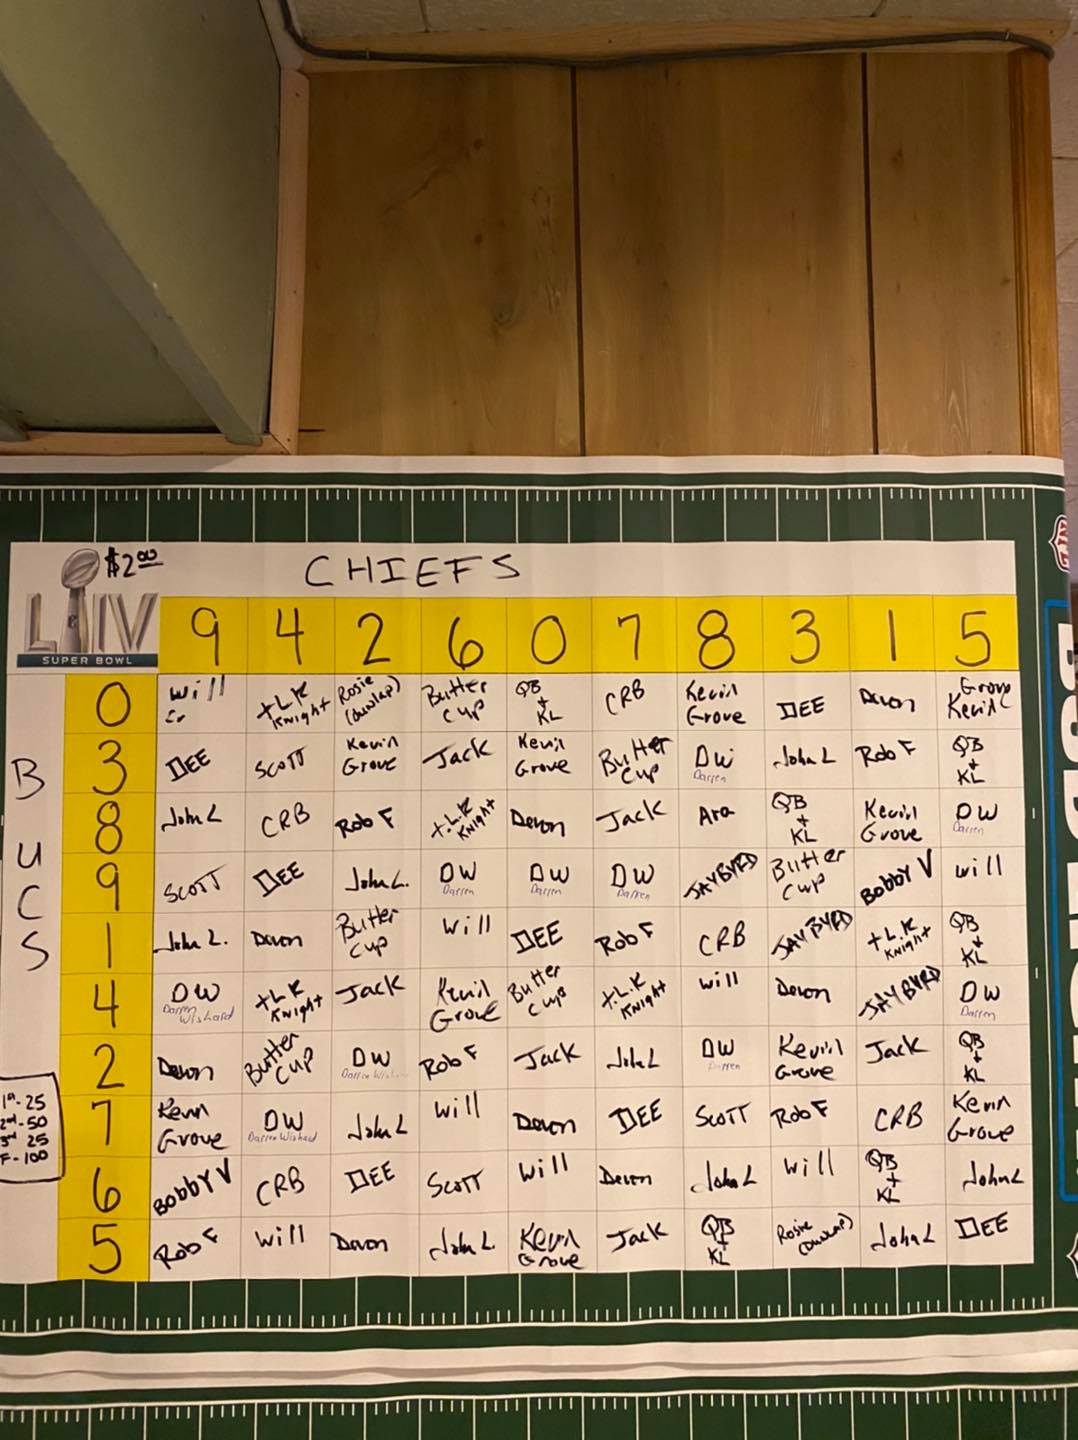 $2.00
CHIEFS
LIV
SUPER BOWL
9 4 2 6 0 7 8 3 1 5
BUCS
0 Will +L.K Knight Rosie (Dunlap) Butter Cup QB + KL CRB Kevin Grove DEE Devon Grove Kevin
3 DEE SCOTT Kevin Grove Jack Kevin Grove Butter Cup DW Darren John L Rob F QB + KL
8 John L CRB Rob F +.L.K Knight Devon Jack Ara QB + KL Kevin Grove DW Darren
9 SCOTT DEE John L. DW Darren DW Darren DW Darren JAYBYRD Butter Cup BOBBY V Will
1 John L. Devon Butter Cup Will DEE Rob F CRB JAYBYRD +L.K Knight QB + KL
4 DW Darren Wishard +L.K Knight Jack Kevin Grove Butter Cup +.L.K Knight Will Devon JAYBYRD DW Darren
2 Devon Butter Cup DW Darren Wishard Rob F Jack John L DW Darren Kevin Grove Jack QB + KL
7 Kevin Grove DW Darren Wishard John L Will Devon DEE SCOTT Rob F CRB Kevin Grove
6 BOBBY V CRB DEE SCOTT Will Devon John L Will QB + KL John L
5 Rob F Will Devon John L. Kevin Grove Jack QB + KL Rosie (Dunlap) John L DEE
1st - 25
2nd - 50
3rd 25
F - 100